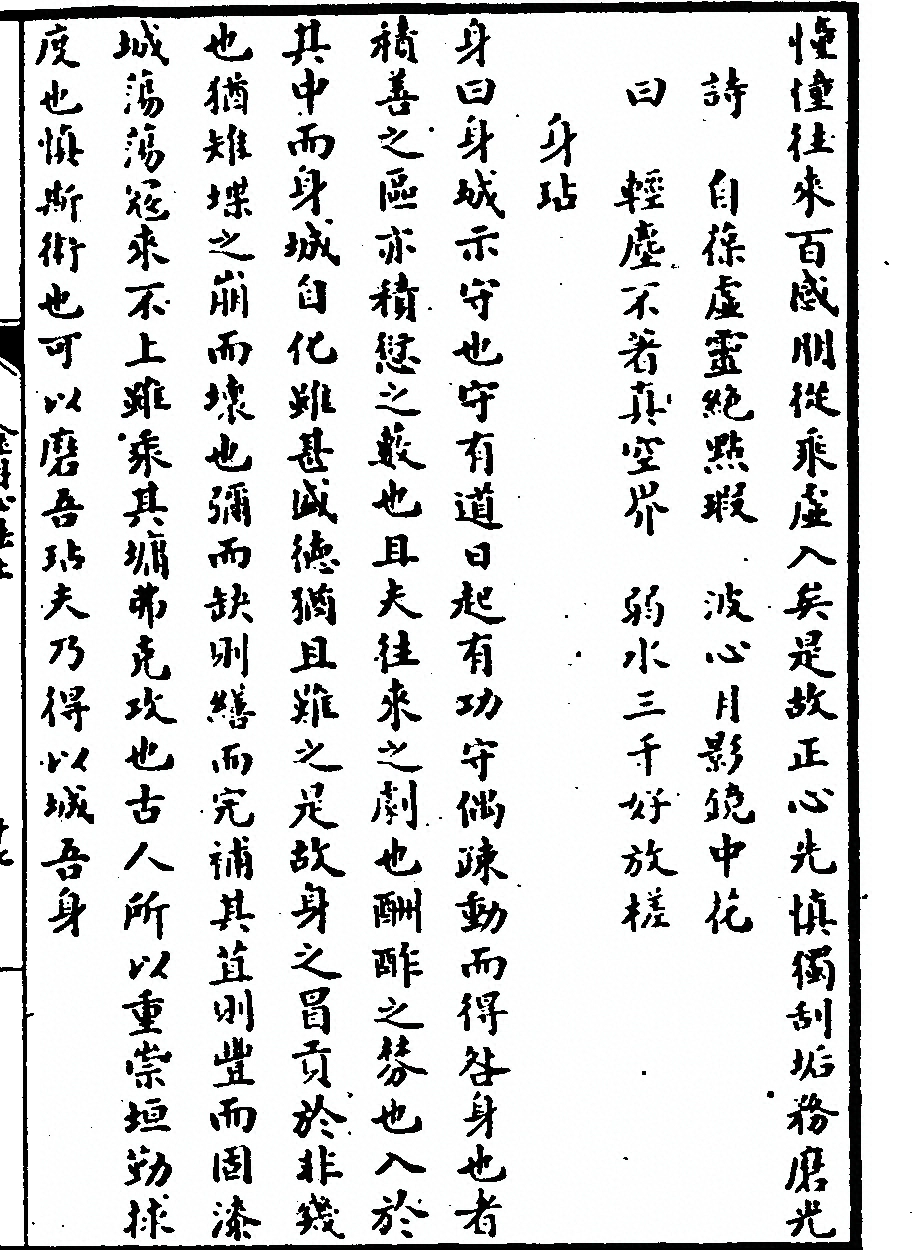 憧憧往來百感朋從乘虛入矣是故正心先慎獨刮垢務磨光
詩　自葆虛靈絕點瑕　波心月影鏡中花
曰　輕塵不著真空界　弱水三千好放槎
身玷
身曰身城示守也守有道曰起有功守偶疎動而得咎身也者
積善之區亦積愆之藪也且夫往來之劇也酬酢之棼也入於
其中而身城自化雖甚盛德猶且難之是故身之冒貢於非幾
也猶雉堞之崩而壞也彌而缺則繕而完補其苴則豐而固漆
城蕩蕩寇來不上雖乘其墉弗克攻也古人所以重崇垣勤捄
度也慎斯術也可以磨吾玷夫乃得以城吾身